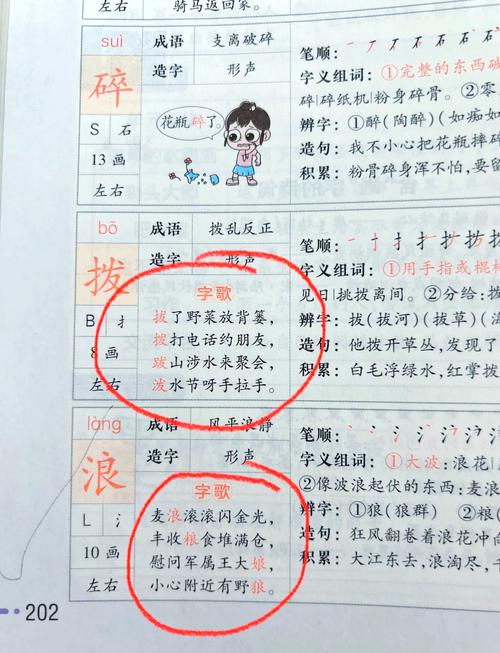 左右
骑马返回家。
suì
成语
支离破碎
造字
形声
碎
S 石
13 画
左右
花瓶碎了。
笔顺：
字义组词：①完整的东西破
碎|碎纸机|粉身碎骨。②零
辨字：①醉（陶醉）（如痴如
造句：我不小心把花瓶摔
积累：粉骨碎身浑不怕，要留
bō
成语
拨乱反正
造字
形声
拨
B 扌
8 画
左右
字歌
拔了野菜放背篓，
拨打电话约朋友，
跋山涉水来聚会，
泼水节呀手拉手。
笔顺：
字义组词：①用手指或棍棒
见日|挑拨离间。②分给：拨
辨字：拔（拔河）（拔草）（
造句：他拨开草丛，发现了
积累：白毛浮绿水，红掌拨
làng
成语
风平浪静
造字
形声
浪
L 氵
10 画
左右
字歌
麦浪滚滚闪金光，
丰收粮食堆满仓，
慰问军属王大娘，
小心附近有野狼。
笔顺：
字义组词：①大波：浪花|
②像波浪起伏的东西：麦浪
辨字：①狼（狼群）②粮（
造句：狂风翻卷着浪花冲向
积累：大江东去，浪淘尽，
202